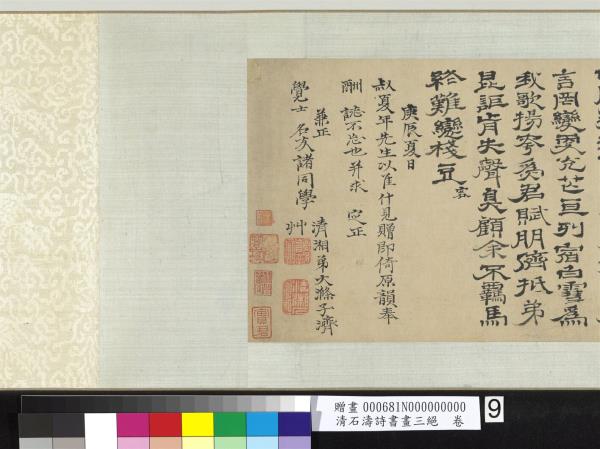 言罔變更允芷豆列宿白雪為
我歌揚夸為君賦朋儕抵弟
昆詎肯失聲臭顧余不羈馬
終難戀棧豆
庚辰夏日
叔夏年先生以佳什見贈即倚原韻奉
酬 誌不忘也并求 定正
兼正
覺士 名友諸同學
清湘弟大滌子濟
艸
贈畫 000681N000000000
清石濤詩書畫三絕 卷
9